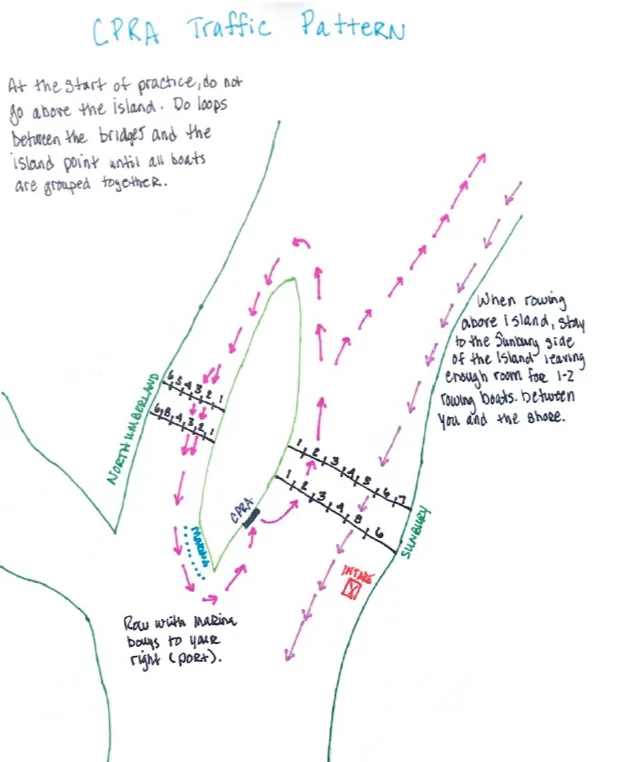 CPRA Traffic Pattern
At the start of practice, do not
go above the island. Do loops
between the bridges and the
island point until all boats
are grouped together.
When rowing
above island, stay
to the Sunbury side
of the Island leaving
enough room for 1-2
rowing boats. between
you and the shore.
NORTHUMBERLAND
6 5 4 3 2 1
6, 5, 4, 3, 2, 1
1 2 3 4 5 6 7
1 2 3 4 5 6
CPRA
MARINA
SUNBURY
INTAKE
Row with Marina
bouys to your
right (port).